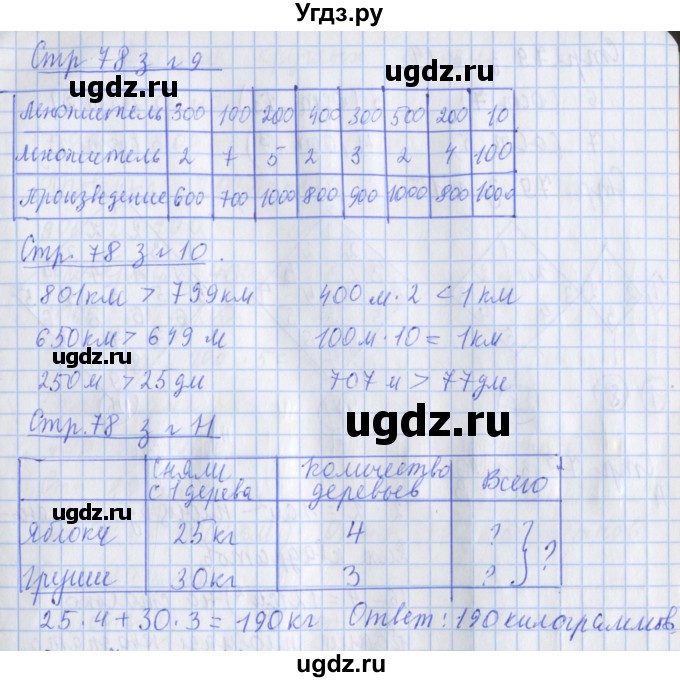 Угдз.ру
Стр 78 з № 9
ugdz.ru ugdz.ru
Множитель 300 100 200 400 300 500 200 10
Множитель 2 7 5 2 3 2 4 100
Произведение 600 700 1000 800 900 1000 800 1000
ugdz.ru
Стр. 78 з № 10.
801км > 799км 400 м · 2 < 1 км
650км > 649 м 100м · 10 = 1км
ugdz.ru
250м > 25 дм 707 м > 77дм
Стр. 78 з № 11 ugdz.ru
Сняли с 1 дерева Количество деревьев Всего
ugdz.ru
Яблоки 25 кг 4 ? ?
Груши 30кг 3 ?
25 · 4 + 30 · 3 = 190 кг Ответ: 190 килограммов
ugdz.ru ugdz.ru
ugdz.ru